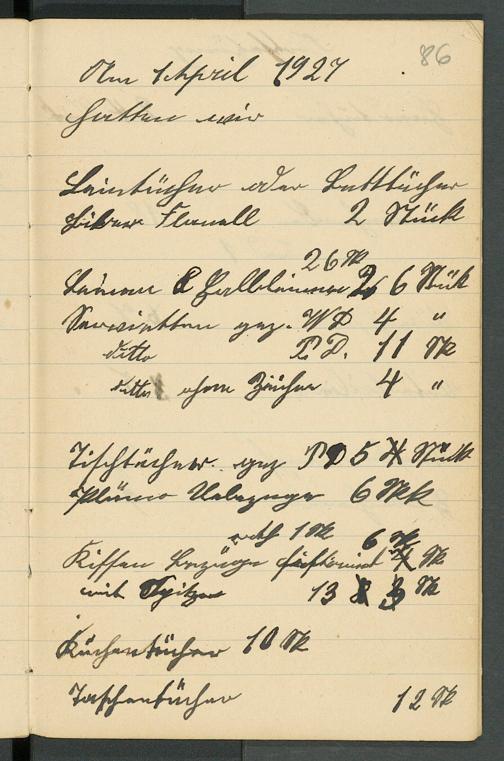 86
Am 1 April 1927
hatten wir
Leintücher oder Betttücher
Biber Flanell 2 Stück
26 Stk
Leinen & Halbleinen 26 Stük
Servietten gez. W D 4 "
ditto P. D. 11 Stk
ditto ohne Zeichen 4 "
Tischtücher gez P D 5 4 Stück
Plümo Ueberzuge 6 Stk
roth 1 Stk 6 Stk
Kissen Bezüge 4 Stk
mit Spitzen 13 8 3 Stk
Küchentücher 10 Stk
Taschentücher 12 Stk